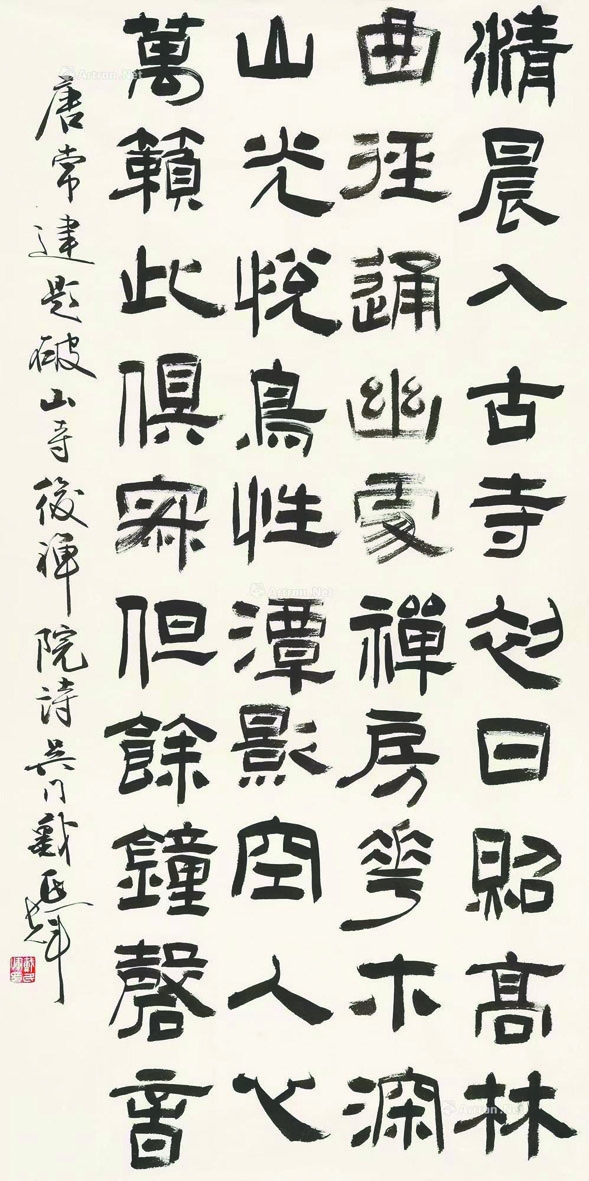 清晨入古寺初日照高林
曲徑通幽處禪房花木深
山光悅鳥性潭影空人心
萬籟此俱寂但餘鐘磬音
唐常建題破山寺後禪院詩吳門戴延輝
Artron.Net
Artron.Net
Artron.Net